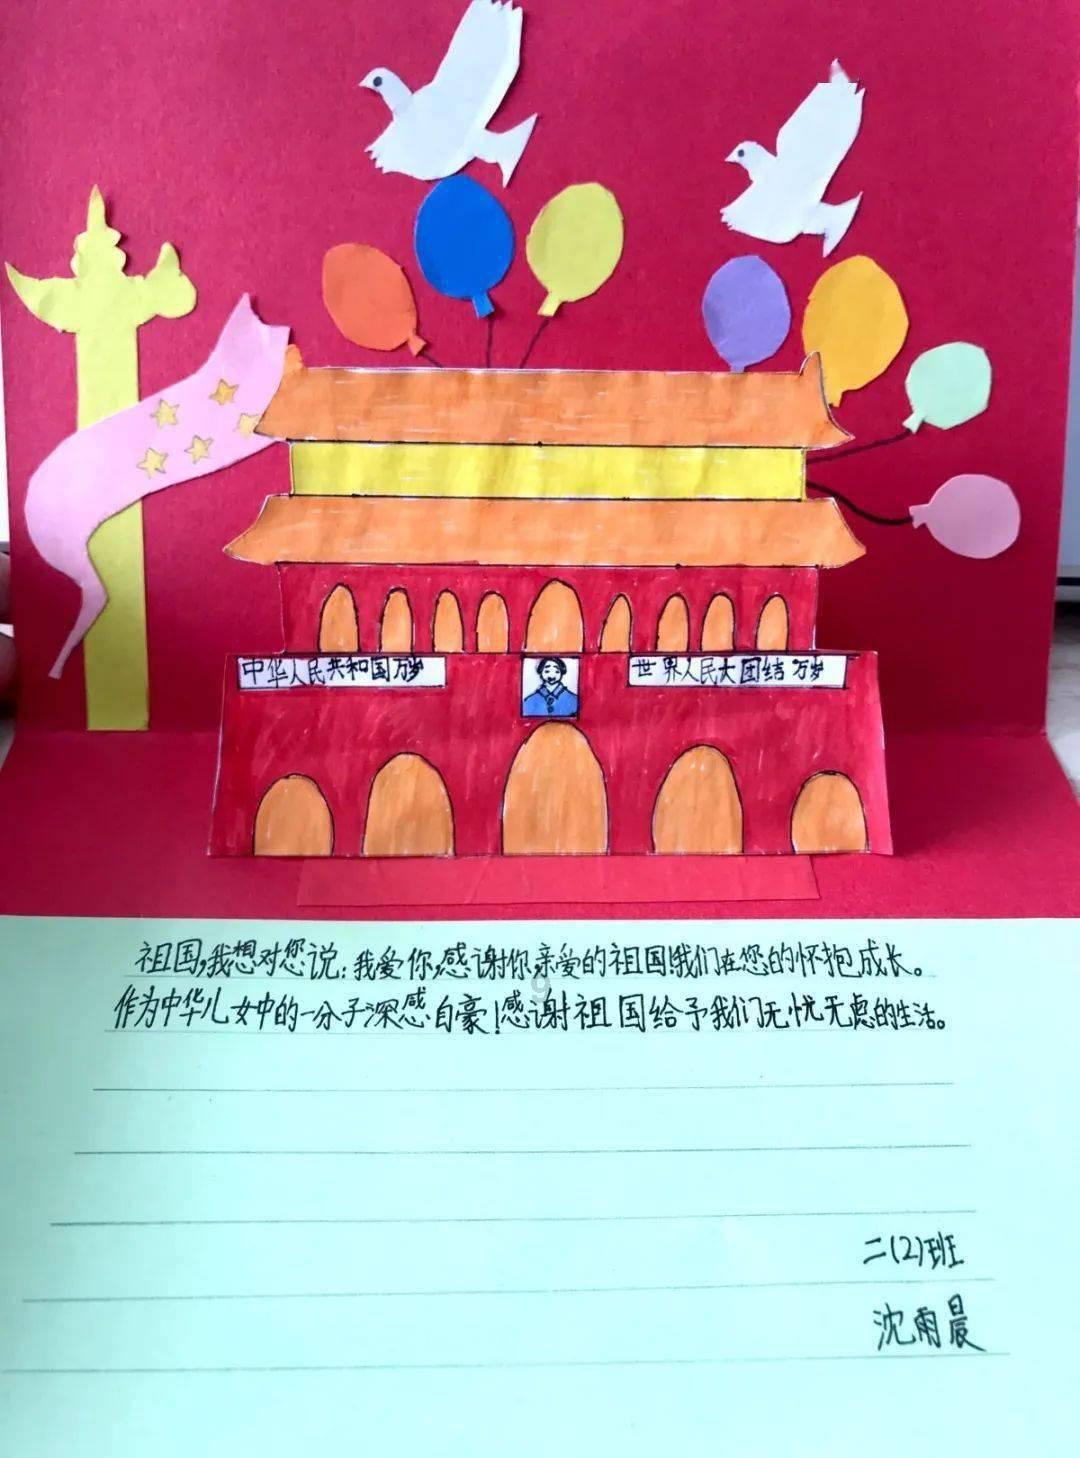 中华人民共和国万岁
世界人民大团结万岁
祖国,我想对您说:我爱你,感谢你,亲爱的祖国!我们在您的怀抱成长。
作为中华儿女中的一分子深感自豪!感谢祖国给予我们无忧无虑的生活。
二(2)班
沈雨晨